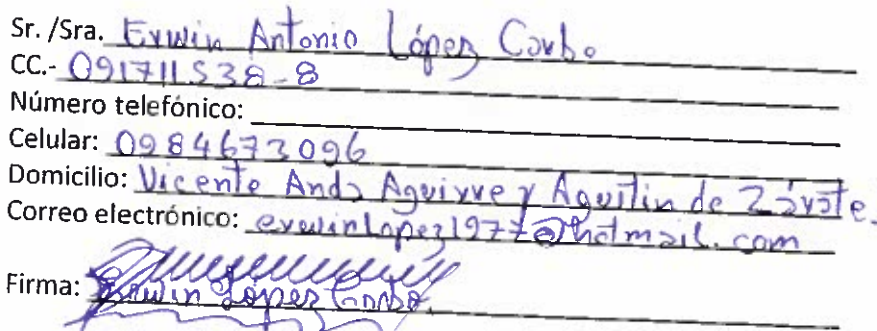 Sr. /Sra. Erwin Antonio López Corbo
CC.- 091711538-8
Número telefónico:
Celular: 0984673096
Domicilio: Vicente Anda Aguirre y Agustin de Zárate.
Correo electrónico: erwinlopez1977@hotmail.com
Firma: Erwin López Corbo